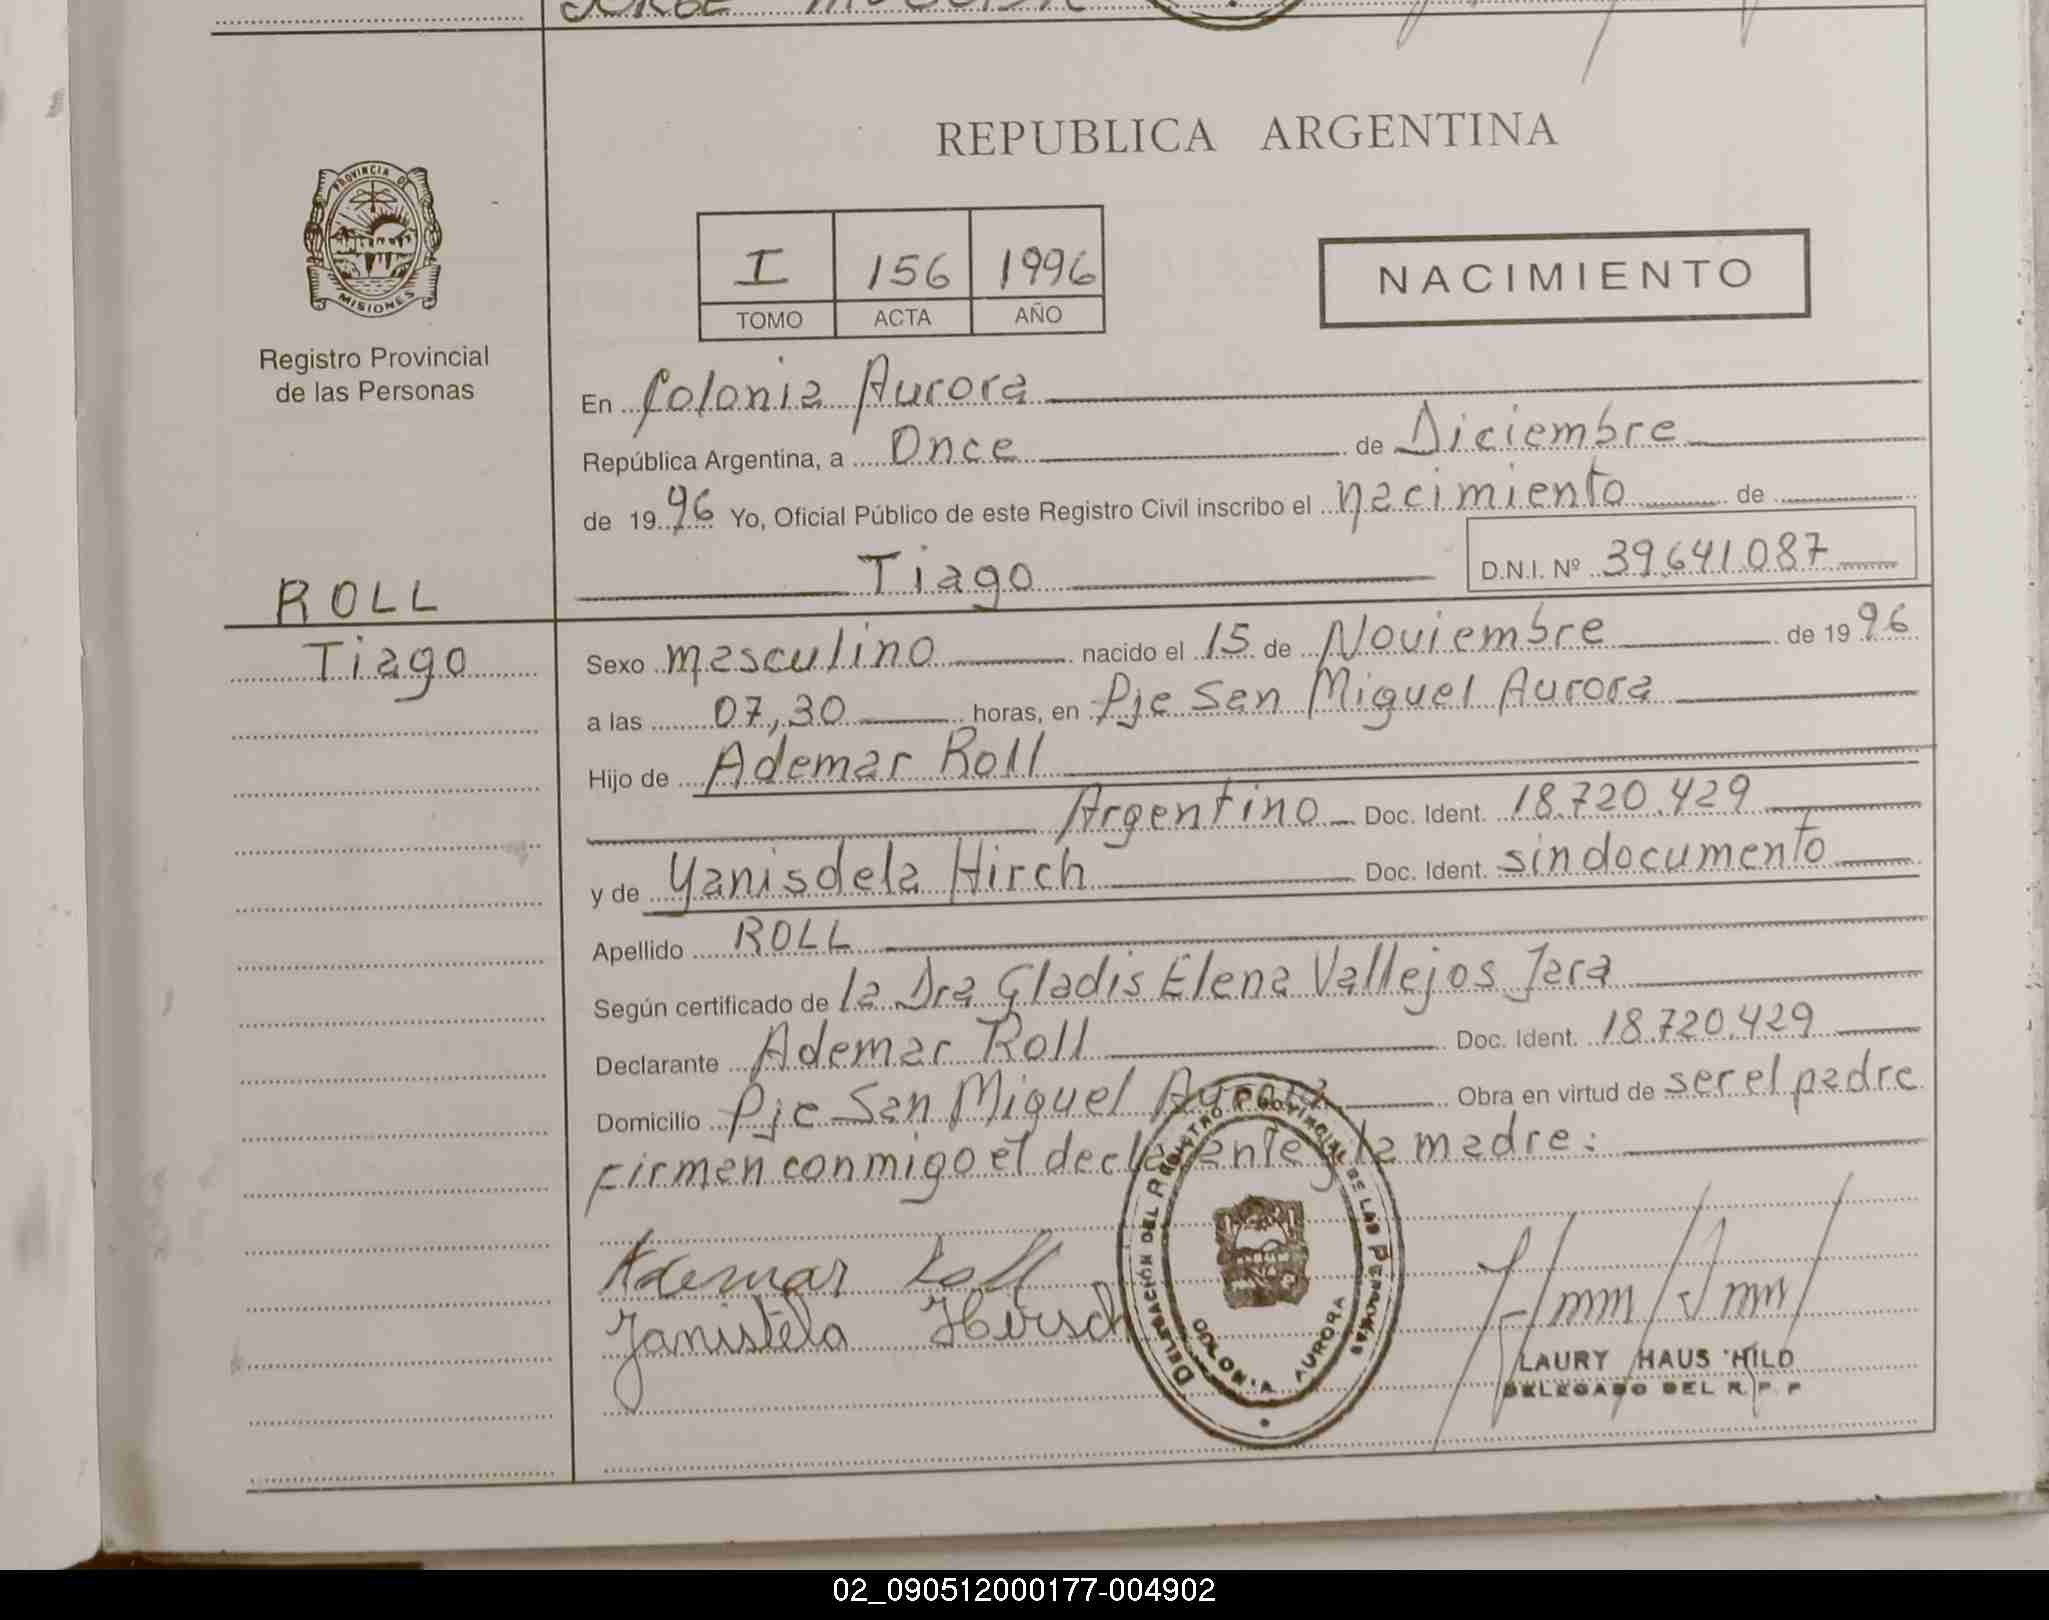 JORGE
REPUBLICA ARGENTINA
PROVINCIA DE
MISIONES
Registro Provincial
de las Personas
I 156 1996
TOMO ACTA AÑO
NACIMIENTO
En Colonia Aurora
República Argentina, a Once de Diciembre
de 1996 Yo, Oficial Público de este Registro Civil inscribo el nacimiento de
Tiago D.N.I. Nº 39.641.087
ROLL
Tiago
Sexo masculino nacido el 15 de Noviembre de 1996
a las 07,30 horas, en Pje San Miguel Aurora
Hijo de Ademar Roll
Argentino Doc. Ident. 18.720.429
y de Yanisdela Hirch Doc. Ident. sin documento
Apellido ROLL
Según certificado de la Dra Gladis Elena Vallejos Jara
Declarante Ademar Roll Doc. Ident. 18.720.429
Domicilio Pje San Miguel Aurora Obra en virtud de ser el padre
Firman conmigo el declarante y la madre:
Ademar Roll
Janistela Hirsch
DELEGACIÓN DEL REGISTRO PROVINCIAL DE LAS PERSONAS
COLONIA AURORA
LAURY HAUS HILD
DELEGADO DEL R. P. P
02_090512000177-004902